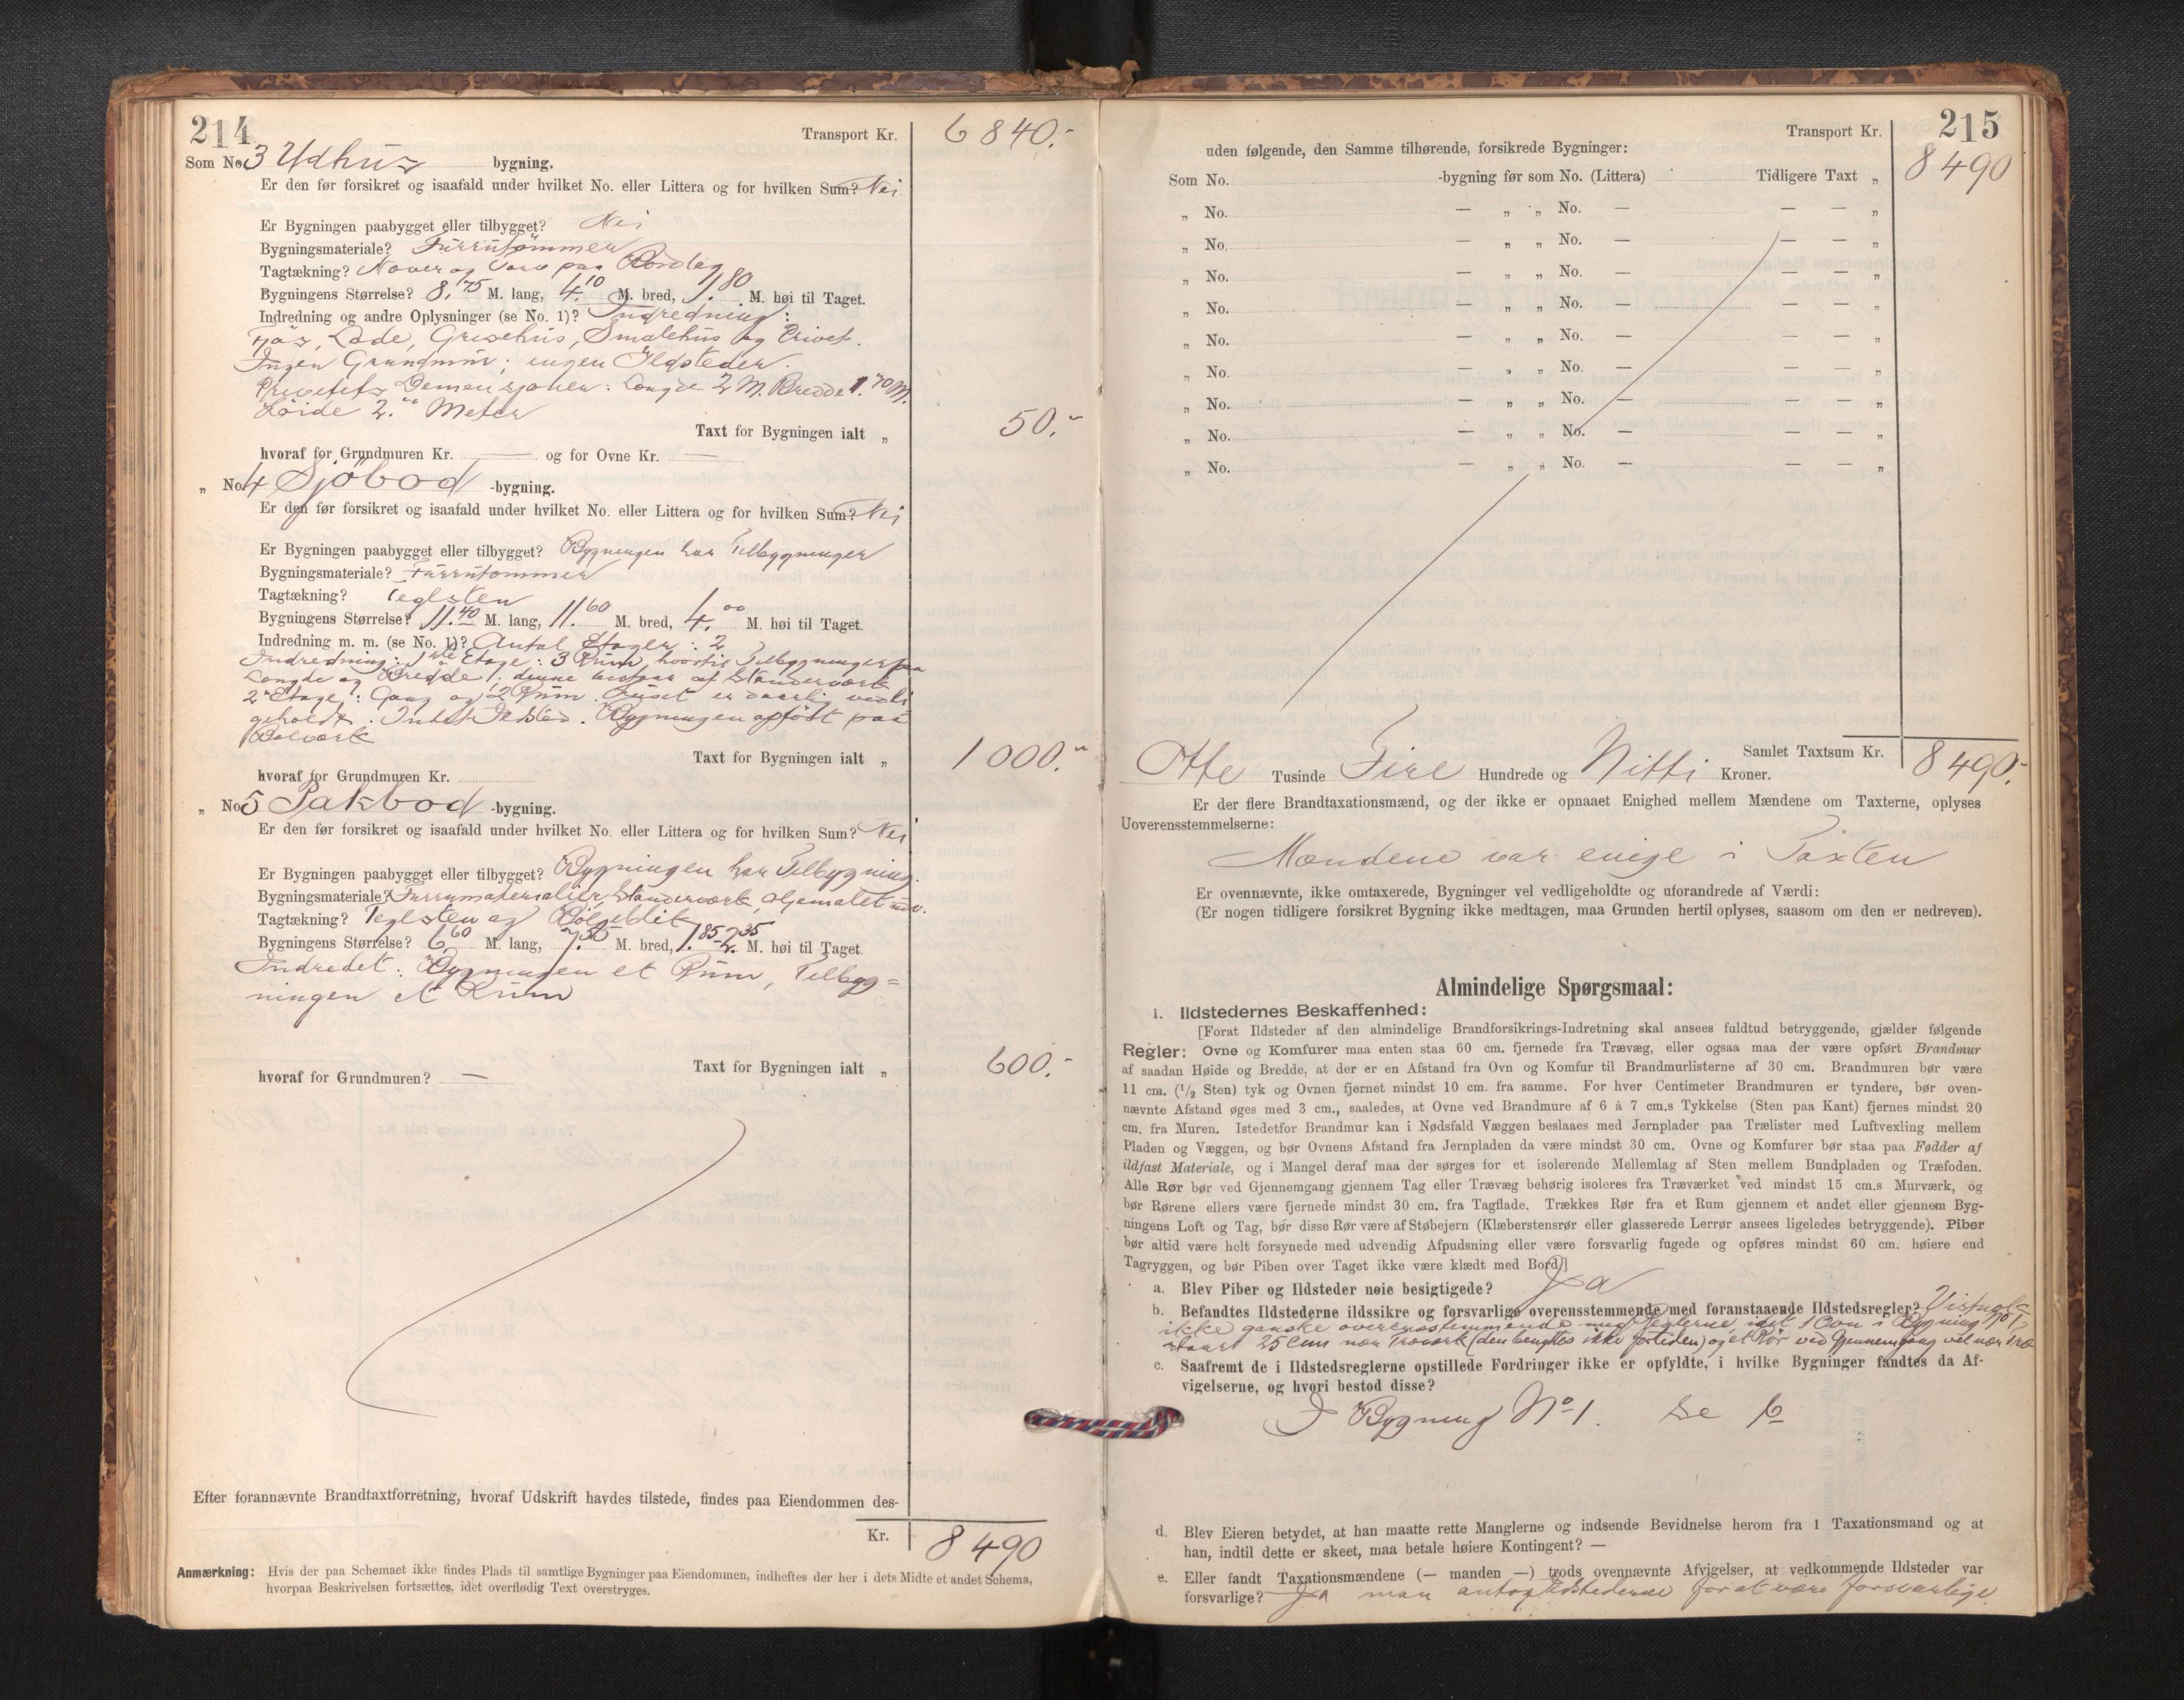 214
Transport Kr. 6 840.-
Som No 3 Udhus bygning.
Er den før forsikret og isaafald under hvilket No. eller Littera og for hvilken Sum? Nei
Er Bygningen paabygget eller tilbygget? Nei
Bygningsmateriale? Furrutømmer
Tagtækning? Næver og Torv paa Bordlag
Bygningens Størrelse? 8.75 M. lang, 4.10 M. bred, 1.80 M. høi til Taget.
Indredning og andre Oplysninger (se No. 1)? Indredning:
Fjøs, Lade, Grisehus, Smalehus og Privet.
Ingen Grundmur; ingen Ildsteder.
Privetets Demensjoner: Længde 2 M. Bredde 1.70 M.
Høide 2. Meter
Taxt for Bygningen ialt „ 50.-
hvoraf for Grundmuren Kr. — og for Ovne Kr. —
„ No 4 Sjöbod -bygning.
Er den før forsikret og isaafald under hvilket No. eller Littera og for hvilken Sum? Nei
Er Bygningen paabygget eller tilbygget? Bygningen har Tilbygninger
Bygningsmateriale? Furrutømmer
Tagtækning? Teglsten
Bygningens Størrelse? 11.40 M. lang, 11.60 M. bred, 4.00 M. høi til Taget.
Indredning m. m. (se No. 1)? Antal Etager: 2
Indredning: 1ste Etage: 3 Rum, hvortil Tilbygninger paa
Længde og Bredde; denne bestaar af Standerværk
2 Etage: Gang og 2 Rum. Huset er daarlig vedli
geholdt. Intet Ildsted. Bygningen opført paa
Bolværk
Taxt for Bygningen ialt „ 1 000.-
hvoraf for Grundmuren Kr.
„ No 5 Pakbod -bygning.
Er den før forsikret og isaafald under hvilket No. eller Littera og for hvilken Sum? Nei
Er Bygningen paabygget eller tilbygget? Bygningen har Tilbygning.
Bygningsmateriale? Furrumaterialier, Standerværk,
Tagtækning? Teglsten og Bølgeblik
Bygningens Størrelse? 6.60 M. lang, 7.55 M. bred, 1.85-2.35 M. høi til Taget.
Indredet: Bygningen et Rum, Tilbyg=
ningen et Rum
Taxt for Bygningen ialt „ 600.-
hvoraf for Grundmuren? —
Efter forannævnte Brandtaxtforretning, hvoraf Udskrift havdes tilstede, findes paa Eiendommen des-
Kr. 8 490
Anmærkning: Hvis der paa Schemaet ikke findes Plads til samtlige Bygninger paa Eiendommen, indheftes der her i dets Midte et andet Schema,
hvorpaa Beskrivelsen fortsættes, idet overflødig Text overstryges.
215
Transport Kr. 8 490
uden følgende, den Samme tilhørende, forsikrede Bygninger:
Som No. -bygning før som No. (Littera) Tidligere Taxt „
„ No. — „ „ No. — — — „
„ No. — „ „ No. — — — „
„ No. — „ „ No. — — — „
„ No. — „ „ No. — — — „
„ No. — „ „ No. — — — „
„ No. — „ „ No. — — — „
„ No. — „ „ No. — — — „
„ No. — „ „ No. — — — „
„ No. — „ „ No. — — — „
Samlet Taxtsum Kr. 8 490.-
Otte Tusinde Fire Hundrede og Nitti Kroner.
Er der flere Brandtaxationsmænd, og der ikke er opnaaet Enighed mellem Mændene om Taxterne, oplyses
Uoverensstemmelserne:
Mændene var enige i Taxten
Er ovennævnte, ikke omtaxerede, Bygninger vel vedligeholdte og uforandrede af Værdi:
(Er nogen tidligere forsikret Bygning ikke medtagen, maa Grunden hertil oplyses, saasom om den er nedreven).
Almindelige Spørgsmaal:
1. Ildstedernes Beskaffenhed:
[Forat Ildsteder af den almindelige Brandforsikrings-Indretning skal ansees fuldtud betryggende, gjælder følgende
Regler: Ovne og Komfurer maa enten staa 60 cm. fjernede fra Trævæg, eller ogsaa maa der være opført Brandmur
af saadan Høide og Bredde, at der er en Afstand fra Ovn og Komfur til Brandmurlisterne af 30 cm. Brandmuren bør være
11 cm. (1/2 Sten) tyk og Ovnen fjernet mindst 10 cm. fra samme. For hver Centimeter Brandmuren er tyndere, bør oven-
nævnte Afstand øges med 3 cm., saaledes, at Ovne ved Brandmure af 6 à 7 cm.s Tykkelse (Sten paa Kant) fjernes mindst 20
cm. fra Muren. Istedetfor Brandmur kan i Nødsfald Væggen beslaaes med Jernplader paa Trælister med Luftvexling mellem
Pladen og Væggen, og bør Ovnens Afstand fra Jernpladen da være mindst 30 cm. Ovne og Komfurer bør staa paa Fødder af
ildfast Materiale, og i Mangel deraf maa der sørges for et isolerende Mellemlag af Sten mellem Bundpladen og Træfoden.
Alle Rør bør ved Gjennemgang gjennem Tag eller Trævæg behørig isoleres fra Træværket ved mindst 15 cm.s Murværk, og
bør Rørene ellers være fjernede mindst 30 cm. fra Tagflade. Trækkes Rør fra et Rum gjennem et andet eller gjennem Byg-
ningens Loft og Tag, bør disse Rør være af Støbejern (Klæberstensrør eller glasserede Lerrør ansees ligeledes betryggende). Piber
bør altid være helt forsynede med udvendig Afpudsning eller være forsvarlig fugede og opføres mindst 60 cm. høiere end
Tagryggen, og bør Piben over Taget ikke være klædt med Bord.]
a. Blev Piber og Ildsteder nøie besigtigede? Ja
b. Befandtes Ildstederne ildssikre og forsvarlige overensstemmende med foranstaaende Ildstedsregler?
ikke ganske overensstemmende med Reglerne idet 1 Ovn i Bygning No 1
staar 25 Cm nær Træværk (den benyttes ikke fortiden) og et Rør ved Gjennemgang vel nær Træ
c. Saafremt de i Ildstedsreglerne opstillede Fordringer ikke er opfyldte, i hvilke Bygninger fandtes da Af-
vigelserne, og hvori bestod disse?
I Bygning No 1. Se b
d. Blev Eieren betydet, at han maatte rette Manglerne og indsende Bevidnelse herom fra 1 Taxationsmand og at
han, indtil dette er skeet, maa betale høiere Kontingent? —
e. Eller fandt Taxationsmændene (— manden —) trods ovennævnte Afvigelser, at vedkommende Ildsteder var
forsvarlige? Ja man antog Ildstederne for at være forsvarlige